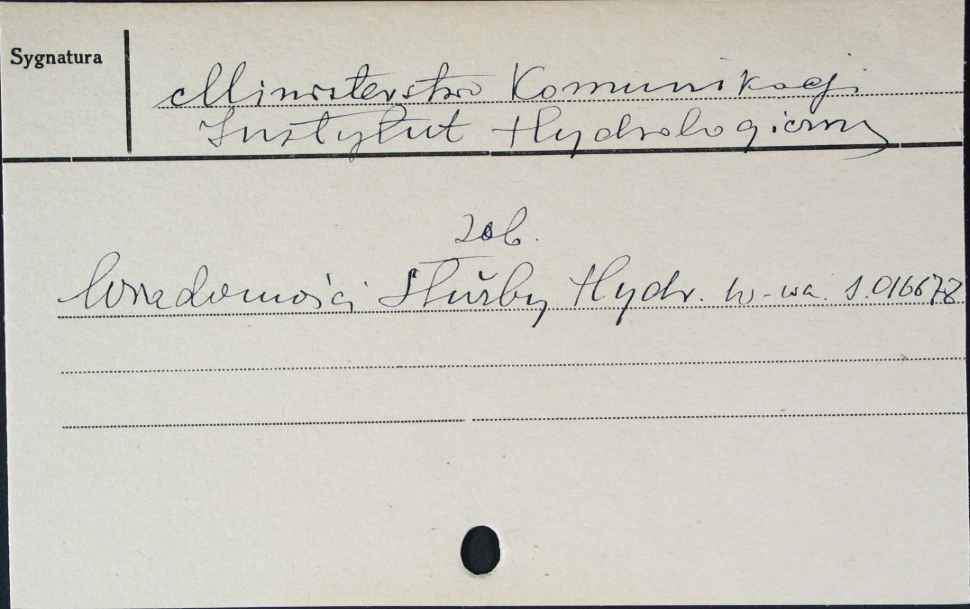 Sygnatura
Ministerstwo Komunikacji
Instytut Hydrologiczny
zob.
Wiadomości Służby Hydr. W-wa. S.016678